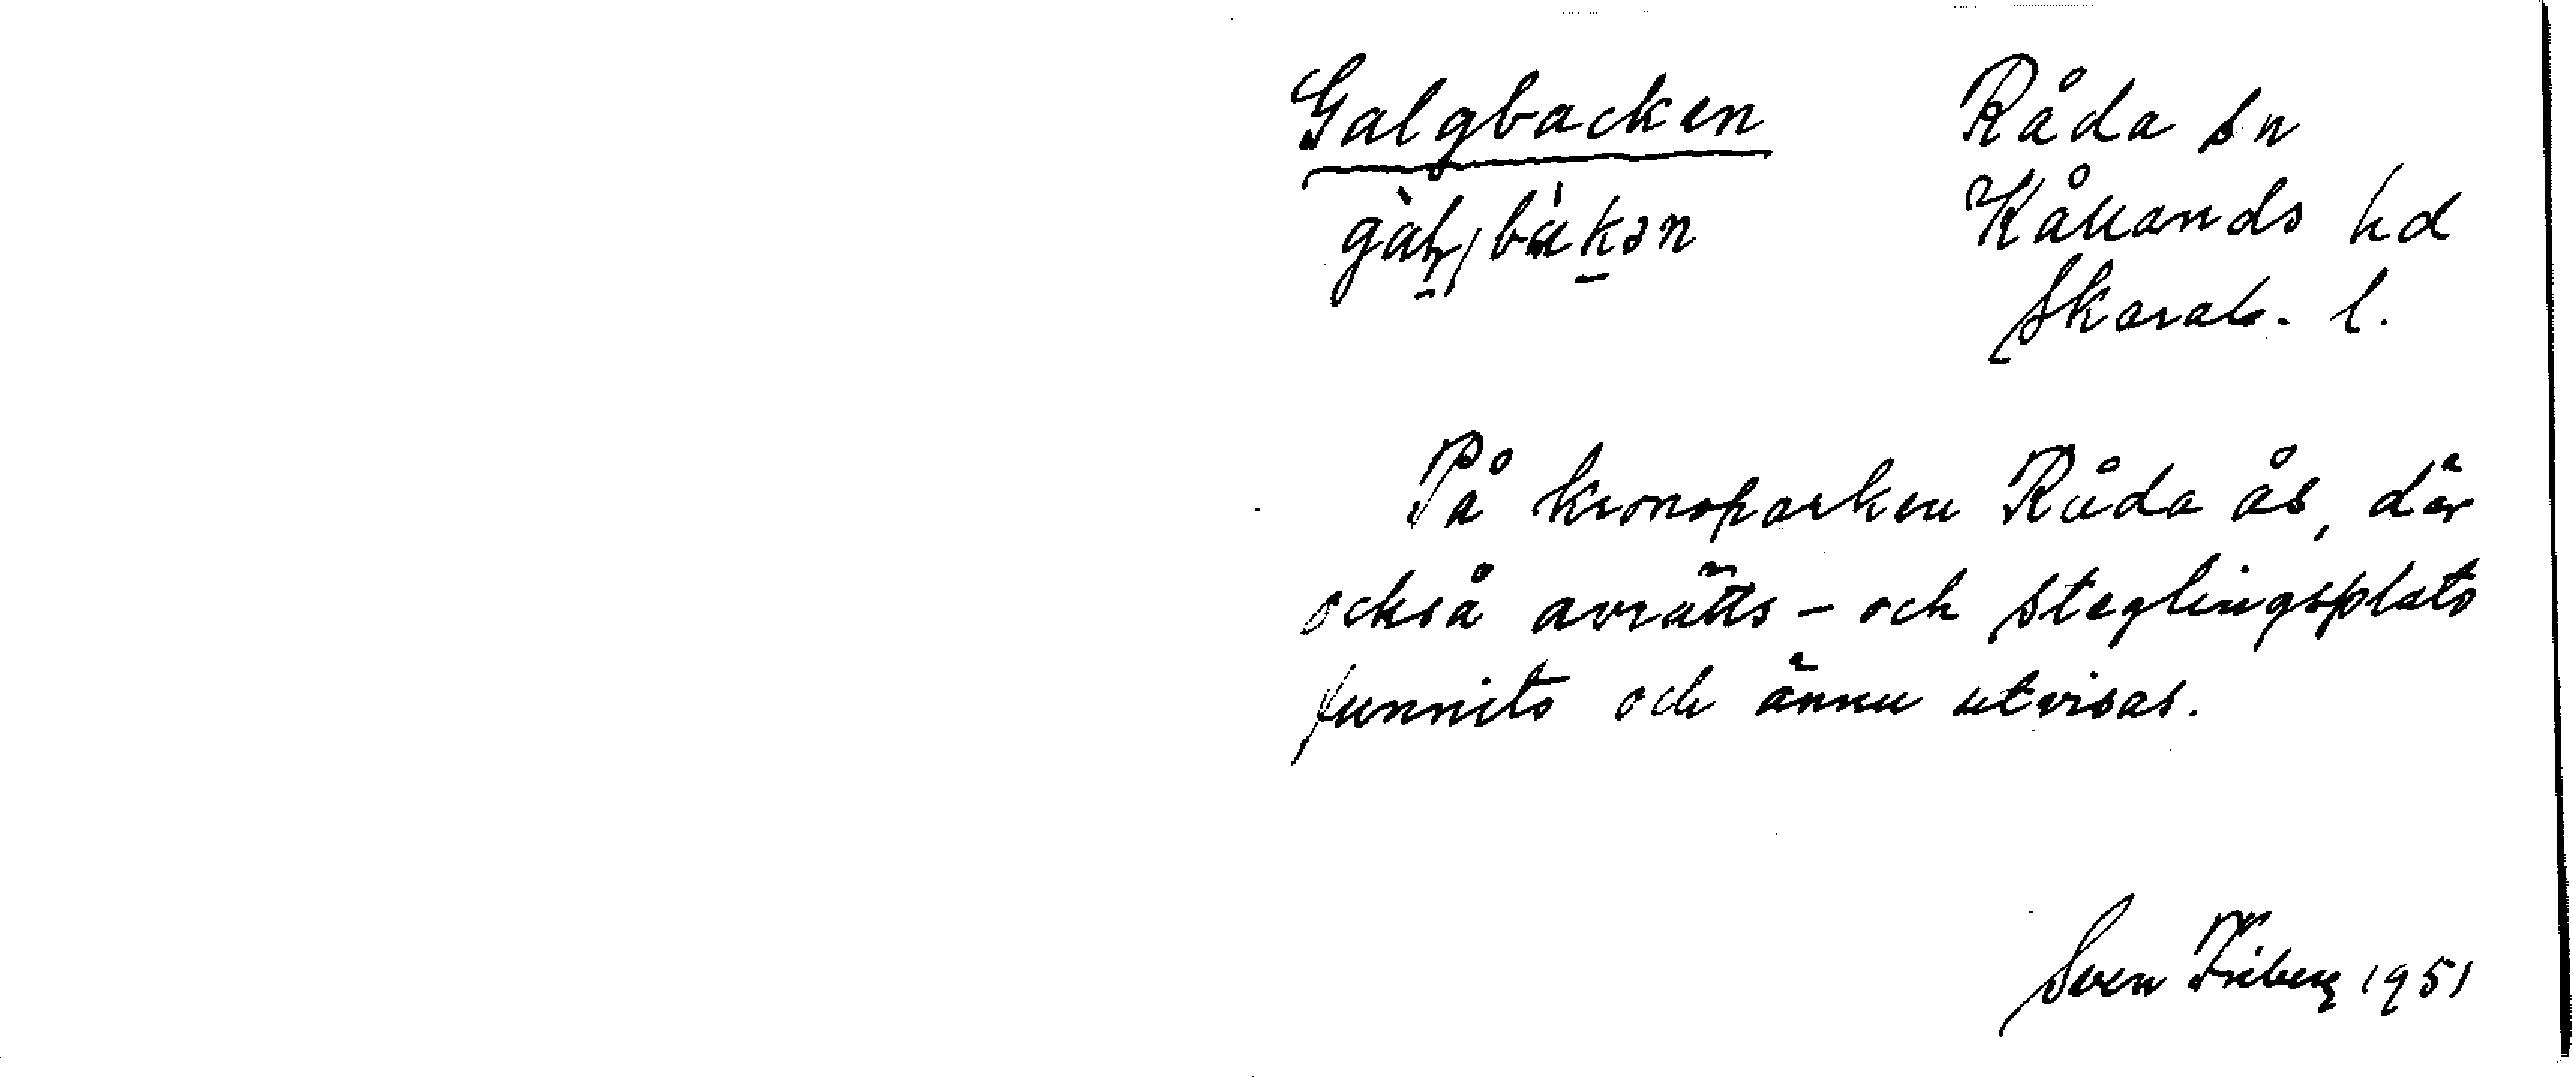 Galgbacken
Råda sn
Kållands hd
Skarab. l.
På kronoparken Råda ås, där
också avrätts- och steglingsplats
funnits och ännu utvisas.
Sven Friberg 1951